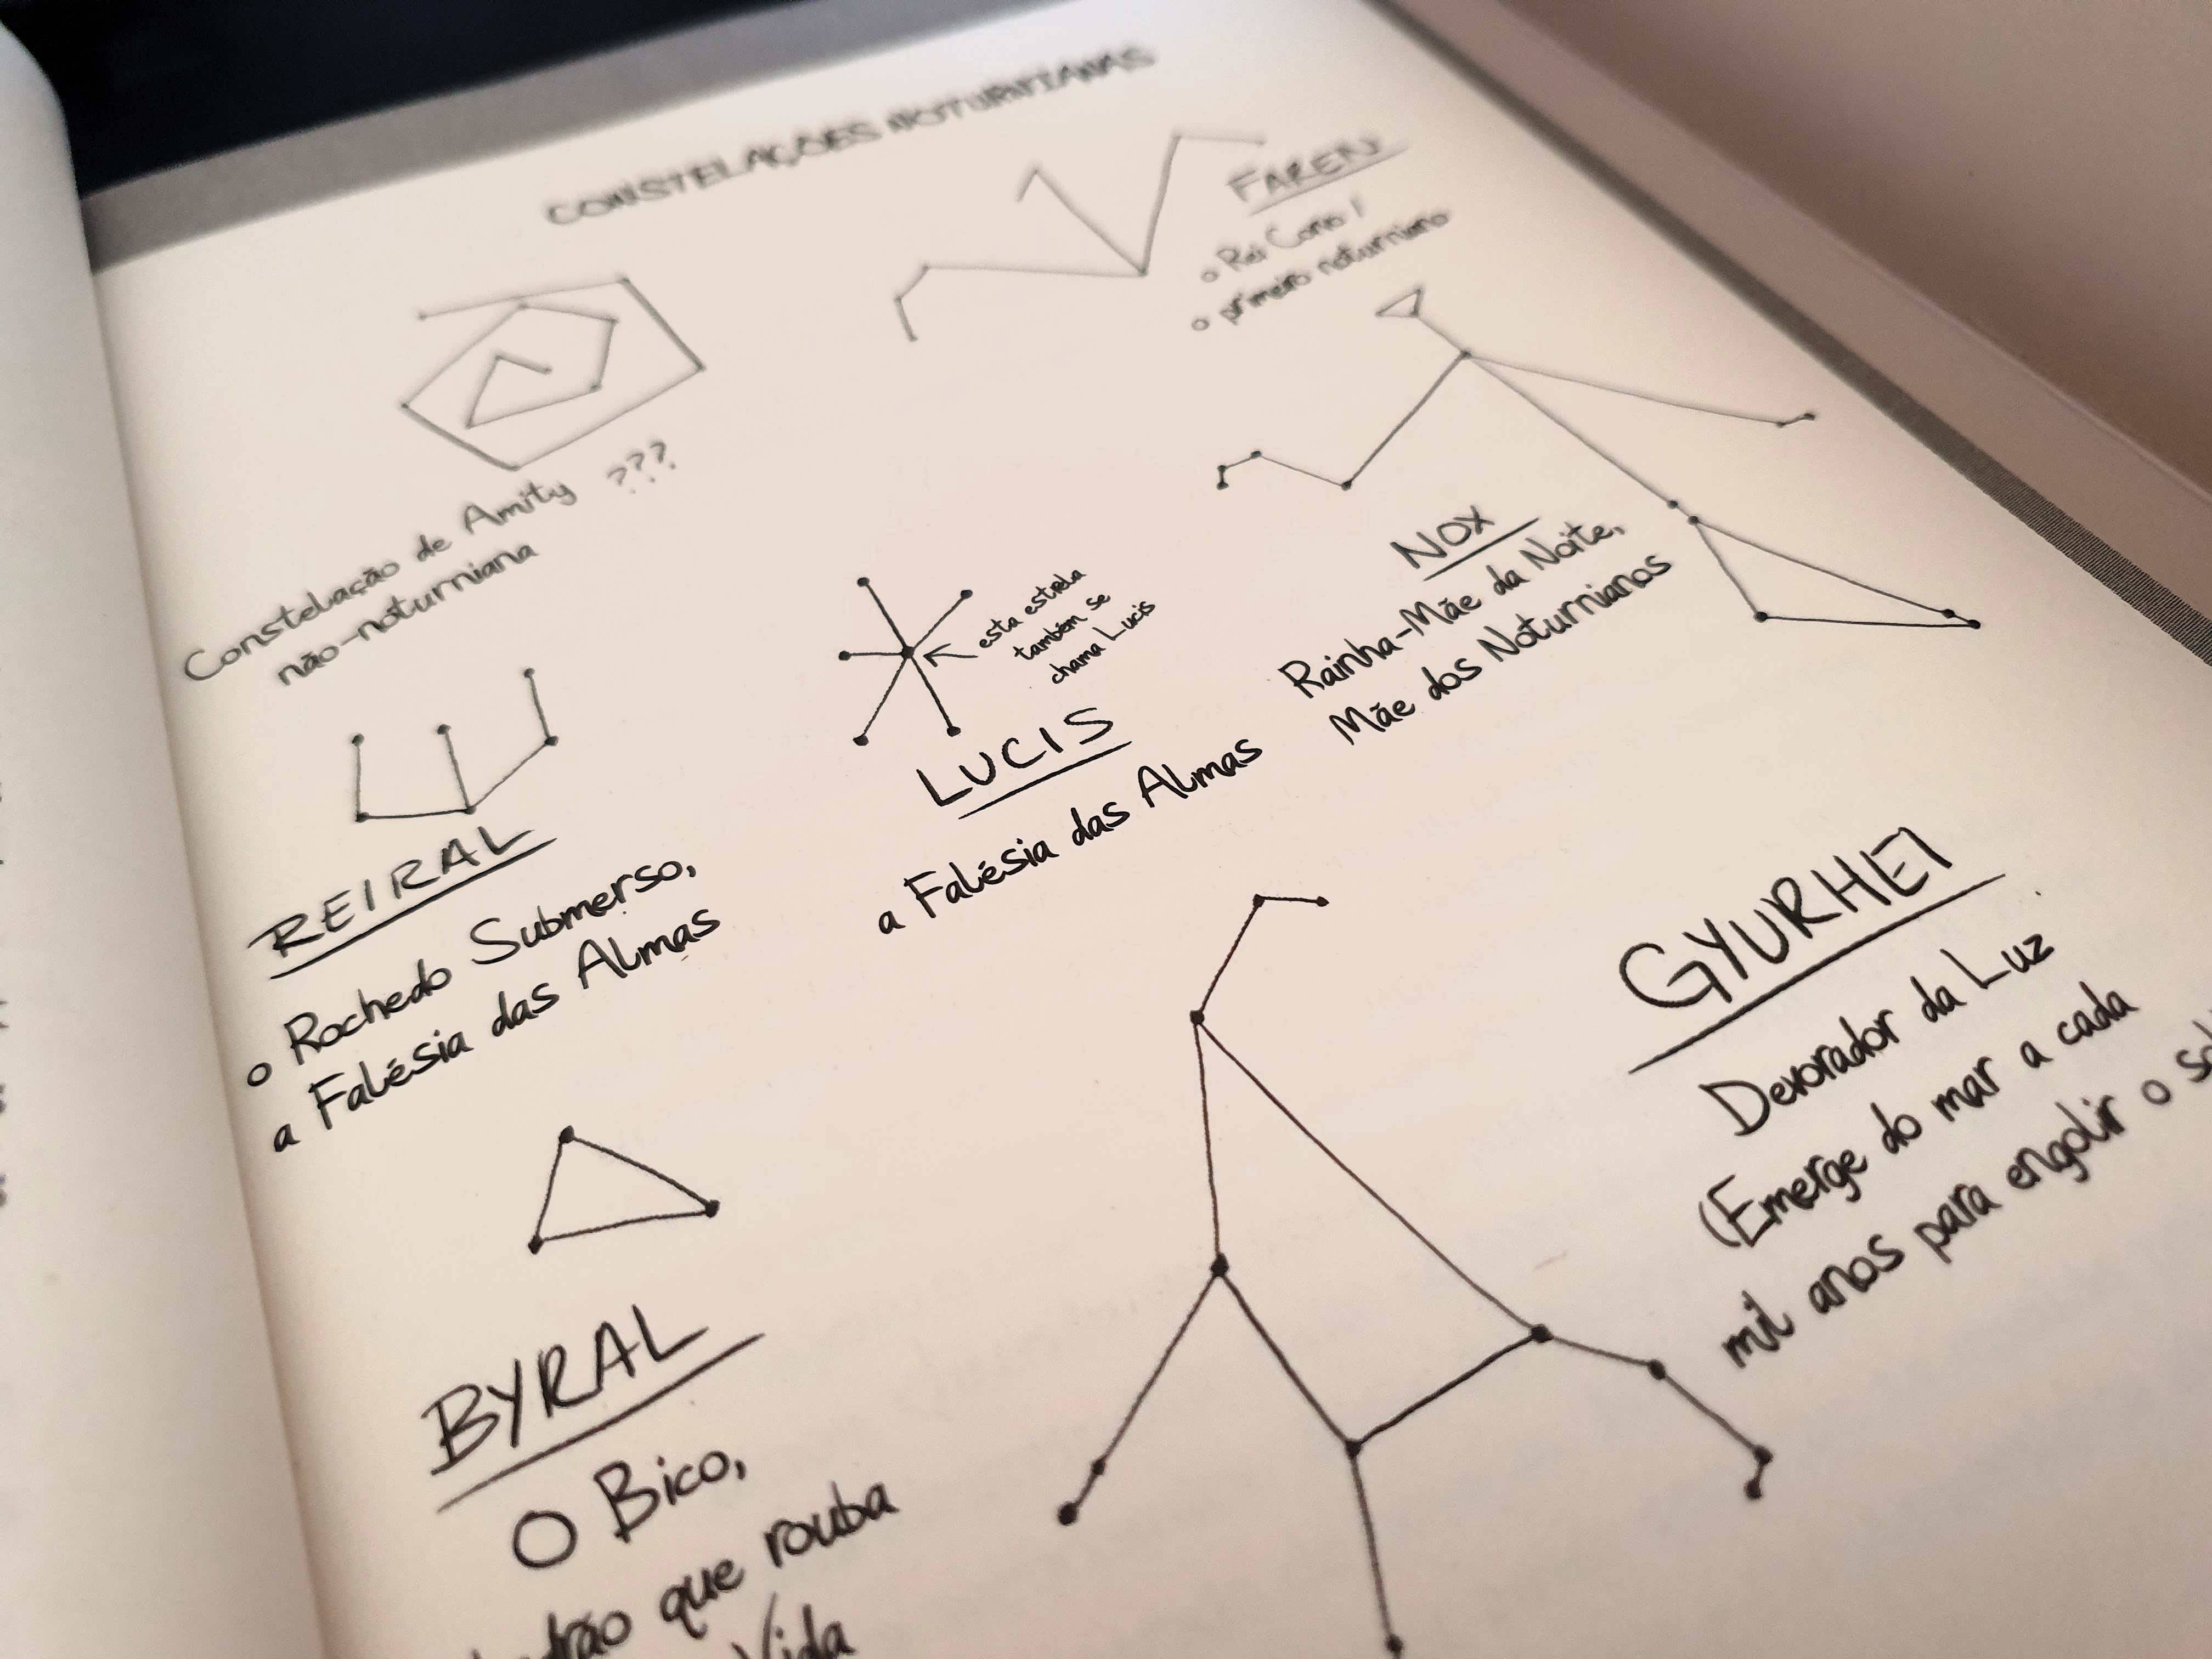 CONSTELAÇÕES NOTURNIANAS
FAREN
o Rei Corvo /
o primeiro noturniano
Constelação de Amity ???
não-noturniana
esta estrela
também se
chama Lucis
LUCIS
a Falésia das Almas
NOX
Rainha-Mãe da Noite,
Mãe dos Noturnianos
REIRAL
o Rochedo Submerso,
a Falésia das Almas
GYURHEI
Devorador da Luz
(Emerge do mar a cada
mil anos para engolir o
BYRAL
O Bico,
que rouba
Vida